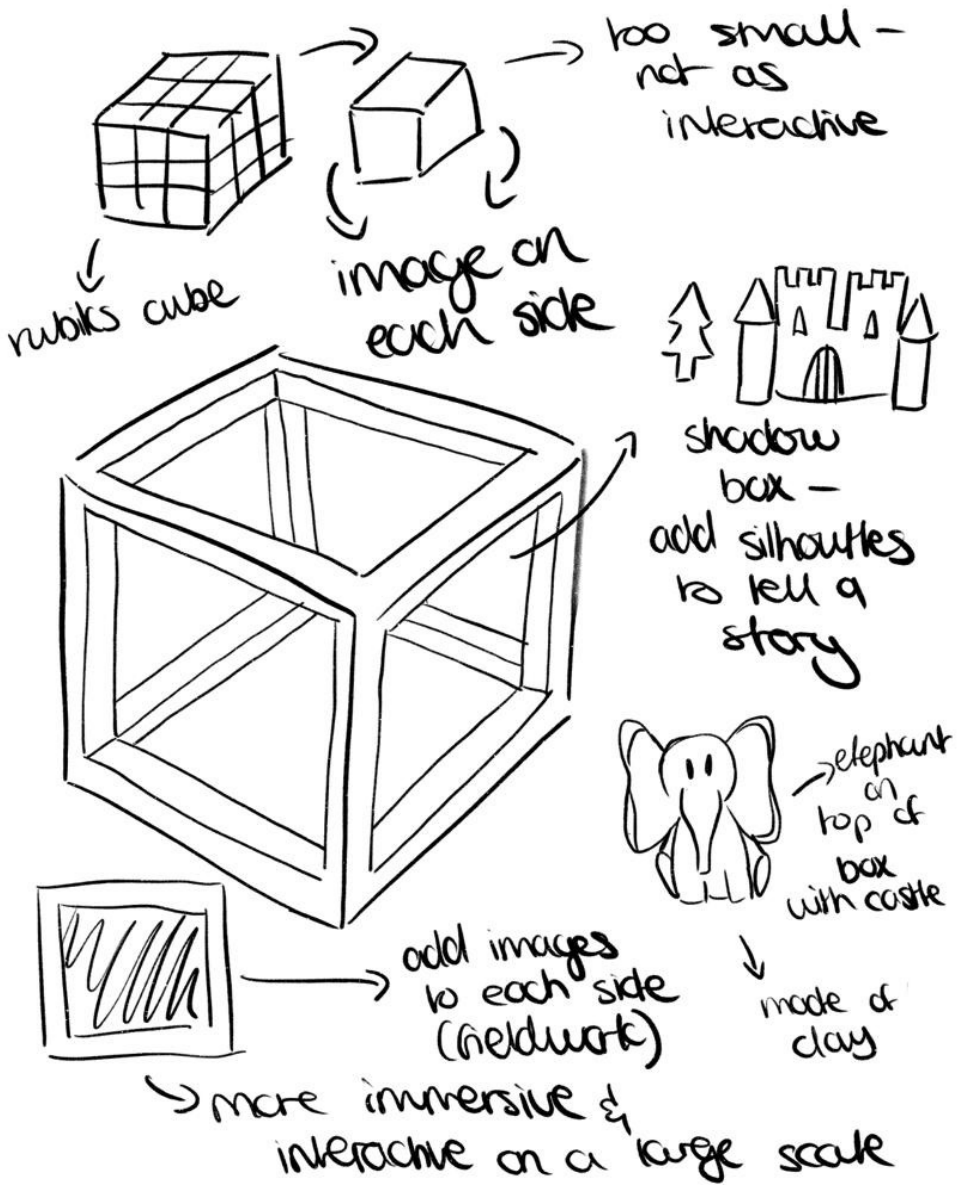 too small -
not as
interactive
rubiks cube
image on
each side
shadow
box -
add silhouttes
to tell a
story
elephant
on
top of
box
with castle
made of
clay
add images
to each side
(fieldwork)
more immersive &
interactive on a large scale